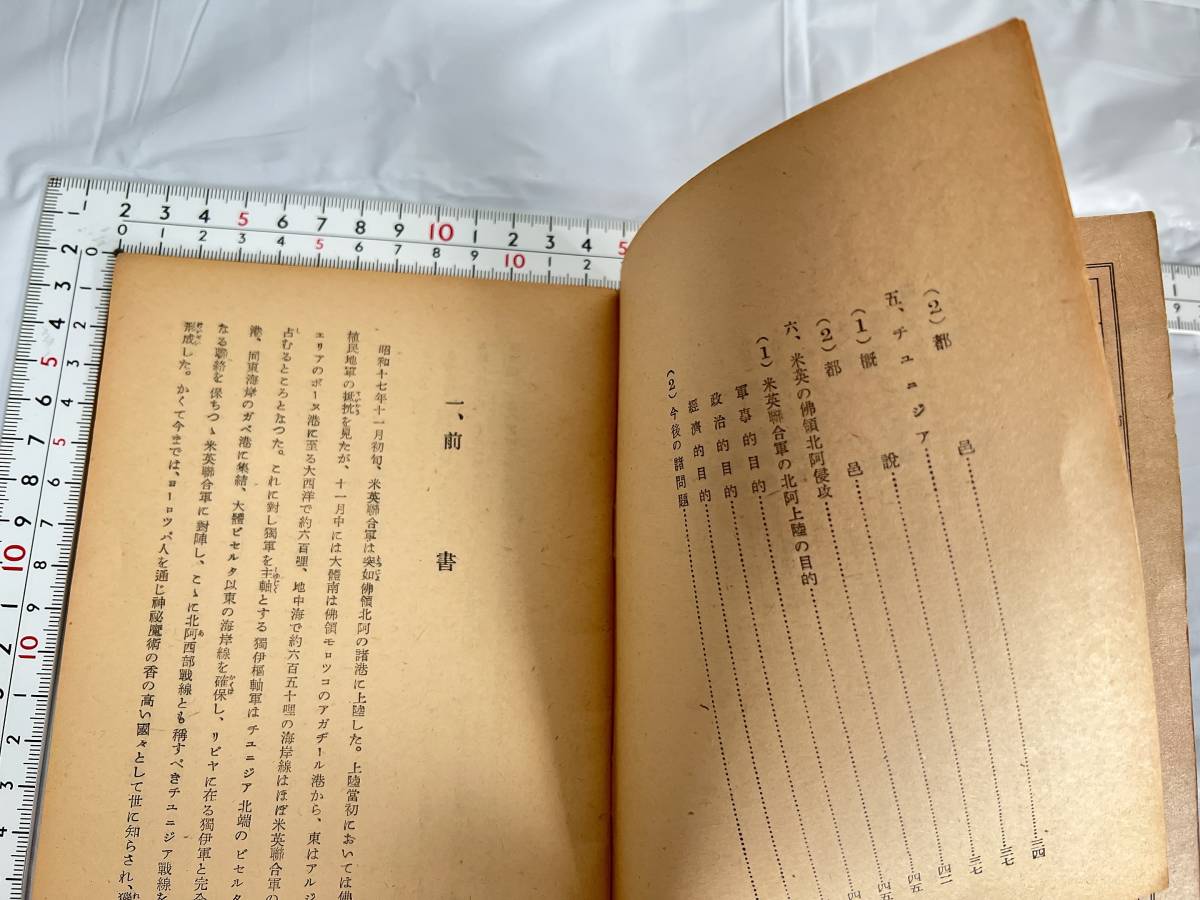 (2)都邑……三四
五、チュニジア……三七
(1)概說……三七
(2)都邑……四二
六、米英の佛領北阿侵攻……四五
(1)米英聯合軍の北阿上陸の目的……四五
軍事的目的……
政治的目的……
經濟的目的……
(2)今後の諸問題……
一、前書
昭和十七年十一月初旬、米英聯合軍は突如佛領北阿の諸港に上陸した。上陸當初においては佛
植民地軍の抵抗を見たが、十一月中には大體南は佛領モロツコのアガヂール港から、東はアルジ
ェリアのボーヌ港に至る大西洋で約六百哩、地中海で約六百五十哩の海岸線はほぼ米英聯合軍の
占むるところとなつた。これに對し獨軍を主軸とする獨伊樞軸軍はチュニジア北端のビセルタ
港、同東海岸のガベ港に集結、大體ビセルタ以東の海岸線を確保し、リビヤに在る獨伊軍と完全
なる聯絡を保ちつゝ米英聯合軍に對陣し、こゝに北阿西部戰線とも稱すべきチュニジア戰線を
形成した。かくて今までは、ヨーロツパ人を通じ神秘魔術の香の高い國々として世に知らされ、